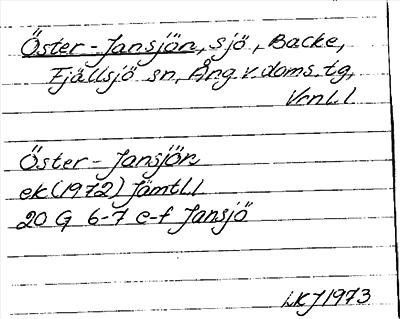 Öster-Jansjön, sjö, Backe,
Fjällsjö sn, Ång.v.doms.tg,
Vrnl.l
Öster-Jansjön
ek(1972) Jämtll
20 G 6-7 e-f Jansjö
LKJ 1973